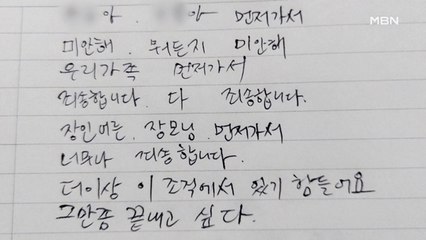 MBN
아. 아 먼저가서
미안해. 뭐든지 미안해
우리가족 먼저가서
죄송합니다. 다 죄송합니다.
장인어른. 장모님. 먼저가서
너무나 죄송합니다.
더이상 이 조직에서 있기 힘들어요
그만좀 끝내고 싶다.